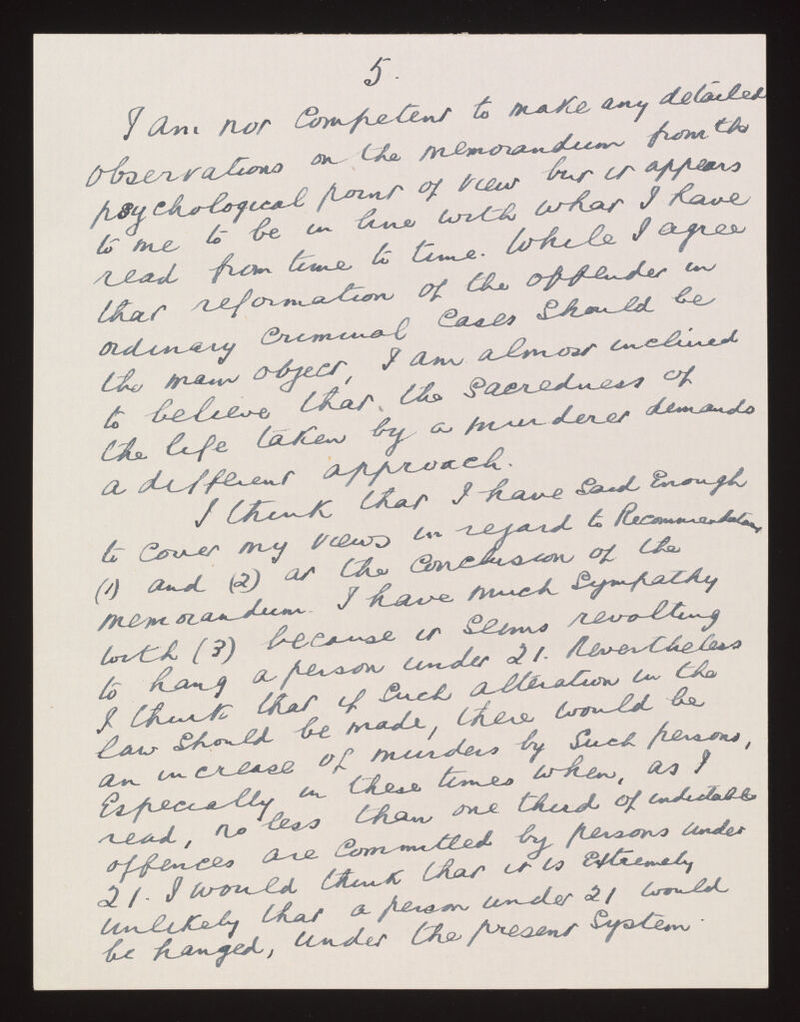 5.
I am not competent to make any detailed
observations on the memorandum from the
psychological point of view but it appears
to me to be in line with what I have
read from time to time. While I agree
that reformation of the offender in
ordinary criminal cases should be
the main object, I am almost inclined
to believe that the sacredness of
the life taken by a murderer demands
a different approach.
I think that I have said enough
to cover my views in regard to Recommendations
(1) and (2) at the conclusion of the
memorandum. I have much sympathy
with (3) because it seems revolting
to hang a person under 21. Nevertheless
I think that if such alteration in the
law should be made, there would be
an increase of murders by such persons,
especially in these times when, as I
read, no less than one third of indictable
offences are committed by persons under
21. I would think that it is extremely
unlikely that a person under 21 would
be hanged, under the present system.